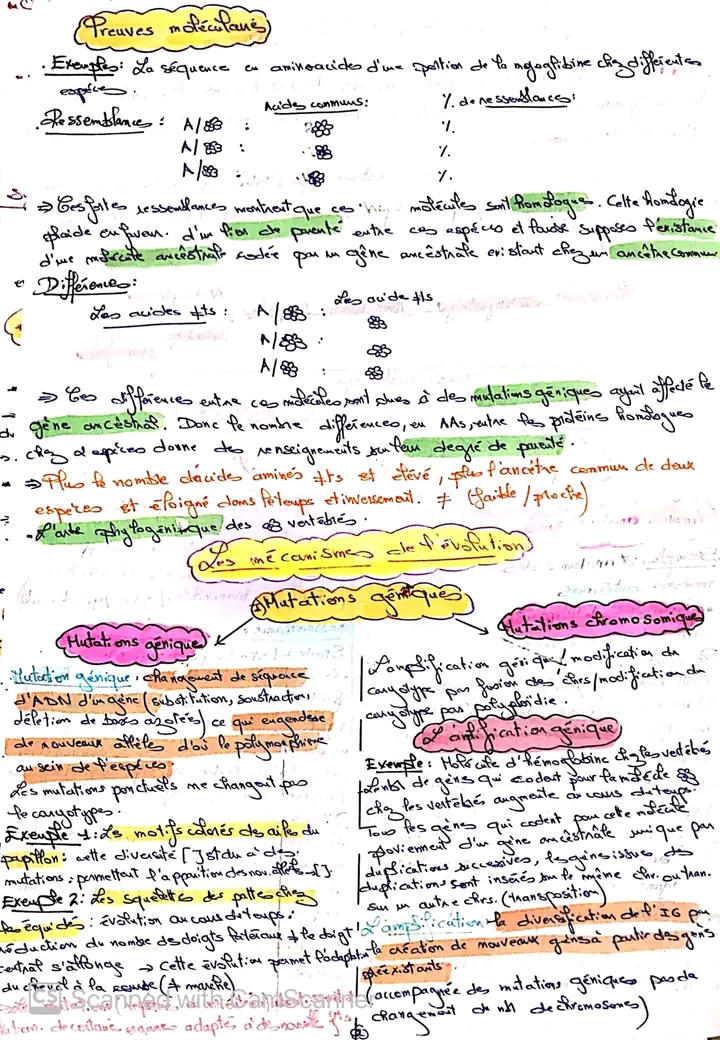 Preuves moléculaires
. Exemples : La séquence en aminoacides d'une portion de la myoglobine chez différentes
espèces.
Acides communs : % de ressemblances :
. Ressemblance : A/ : %.
A/ : %.
A/ : %.
⇒ Ces fortes ressemblances montrent que ces molécules sont homologue. Cette homologie
plaide en faveur d'un lien de parenté entre ces espèces et laisse supposer l'existance
d'une molécule ancéstrale codée par un gène ancéstrale existant chez un ancêtre commun
Différences :
Les acide ≠ts
Les acides ≠ts : A/ :
A/ :
A/ :
⇒ Ces différences entre ces molécules sont dues à des mutations géniques ayant affecté le
gène ancéstral. Donc le nombre différences, en AAs, entre les protéines homologues
chez 2 espèces donne des renseignements sur leur degré de parenté.
⇒ Plus le nombre d'acides aminés ≠ts est élevé, plus l'ancêtre commun de deux
espèces est éloigné dans le temps et inversement. ≠ (faible / proche)
. L'arbre phylogénique des vertébrés.
Les mécanismes de l'évolution
Mutations génétiques
Mutations génique
. Mutation génique : changement de séquence
d'ADN d'un gène (substitution, soustraction,
déletion de bases azotées) ce qui engendre
de nouveaux allèles d'où le polymorphisme
au sein de l'espèces
Les mutations ponctuels ne changent pas
le caryotypes.
Exemple 1 : Les motifs colorés des ailes du
papillon : cette diversité [ ] est du à des
mutations ; permettant l'apparition des nov. allèles [ ].
Exemple 2 : Les squelettes des pattes chez
les équidés : évolution au cours du temps :
réduction du nombre des doigts latéraux + le doigt
central s'allonge → Cette évolution permet l'adaptation
du cheval à la course (≠ marche)
adaptés à de nouvelle
Mutations chromosomique
L'amplification génique / modification du
caryotype par fusion des chrs / modification du
caryotype par polyploïdie.
L'amplification génique
Exemple : Molécule d'hémoglobine chez les vertébrés
Le nbr de gènes qui codent pour la molécule
chez les vertébrés augmente au cours du temps.
Tous les gènes qui codent pour cette molécule
proviennent d'un gène ancéstrale unique par
duplications successives, les gènes issues des
duplications sont insérés sur le même chr. ou
sur un autre chrs. (transposition)
L'amplification : la diversification de l'IG par
la création de nouveaux gènes à partir des gens
préexistants
(accompagnée des mutations géniques pas de
changement de nbr de chromosomes)
CS Scanned with CamScanner